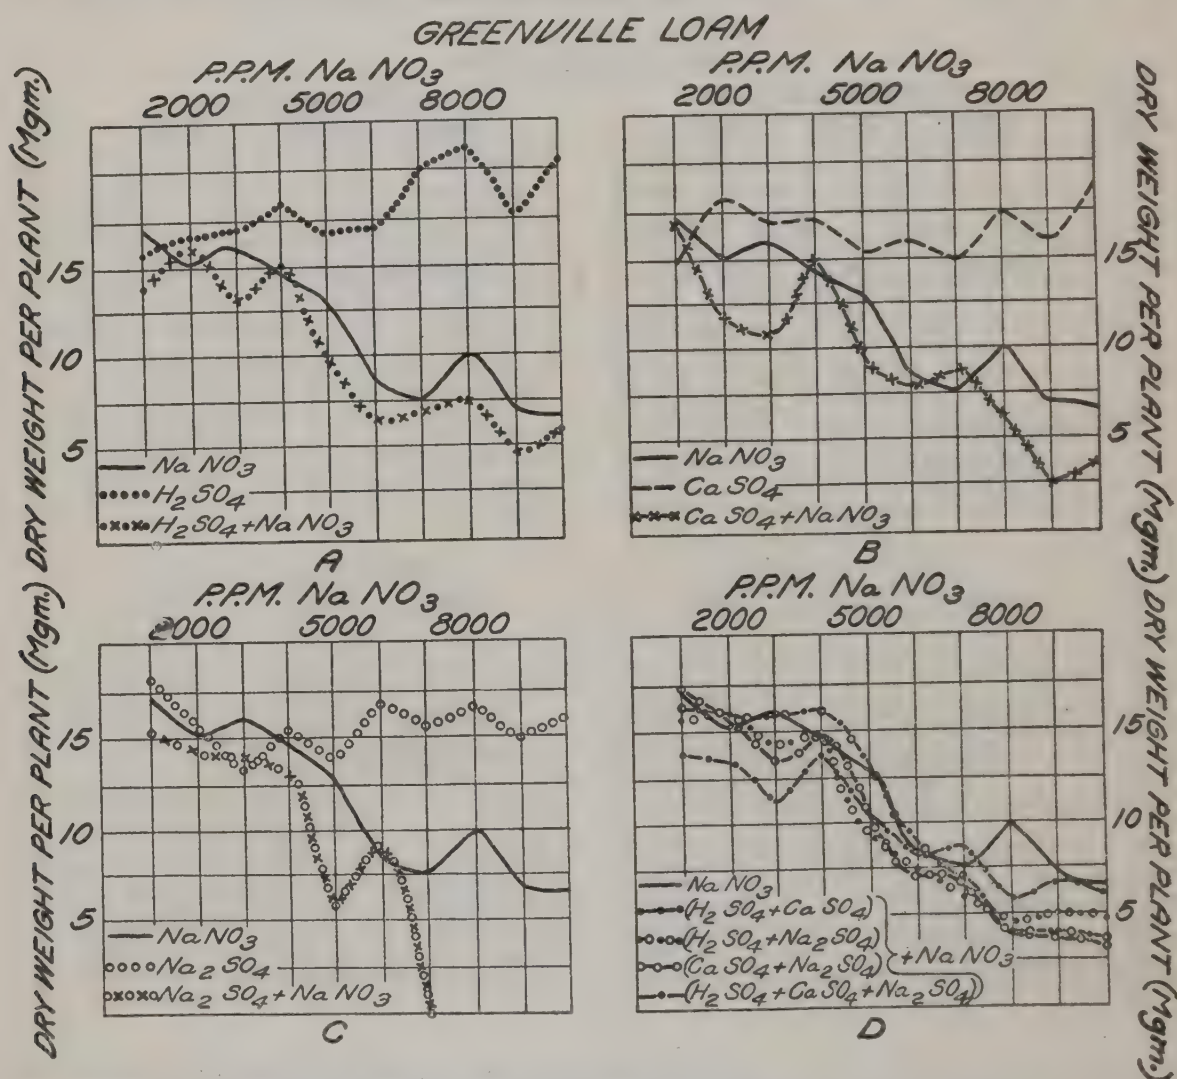 GREENVILLE LOAM
P.P.M. Na NO3
2000 5000 8000
DRY WEIGHT PER PLANT (Mgm.)
15
10
5
Na NO3
H2SO4
H2SO4+NaNO3
A
P.P.M. Na NO3
2000 5000 8000
DRY WEIGHT PER PLANT (Mgm.)
15
10
5
Na NO3
Ca SO4
Ca SO4+NaNO3
B
P.P.M. Na NO3
2000 5000 8000
DRY WEIGHT PER PLANT (Mgm.)
15
10
5
Na NO3
Na2 SO4
Na2 SO4+NaNO3
C
P.P.M. Na NO3
2000 5000 8000
DRY WEIGHT PER PLANT (Mgm.)
15
10
5
Na NO3
(H2 SO4+Ca SO4)
(H2 SO4+Na2 SO4)
(Ca SO4+Na2 SO4)
+NaNO3
(H2 SO4+Ca SO4+Na2 SO4)
D